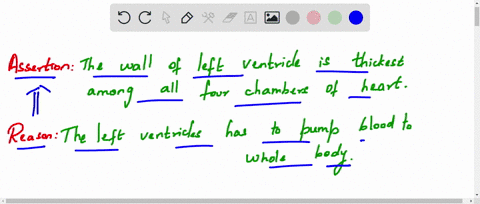 Assertion: The wall of left ventricle is thickest
among all four chambers of heart.
Reason: The left ventricles has to pump blood to
whole body.